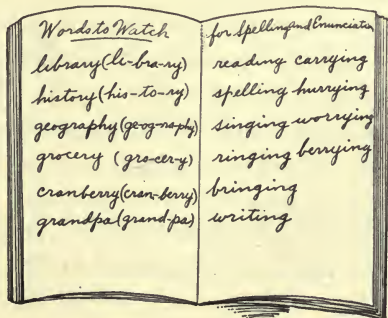 Words to Watch
library (li-bra-ry)
history (his-to-ry)
geography (geog-ra-phy)
grocery (gro-cer-y)
cranberry (cran-berry)
grandpa (grand-pa)
for Spelling and Enunciation
reading carrying
spelling hurrying
singing worrying
ringing berrying
bringing
writing